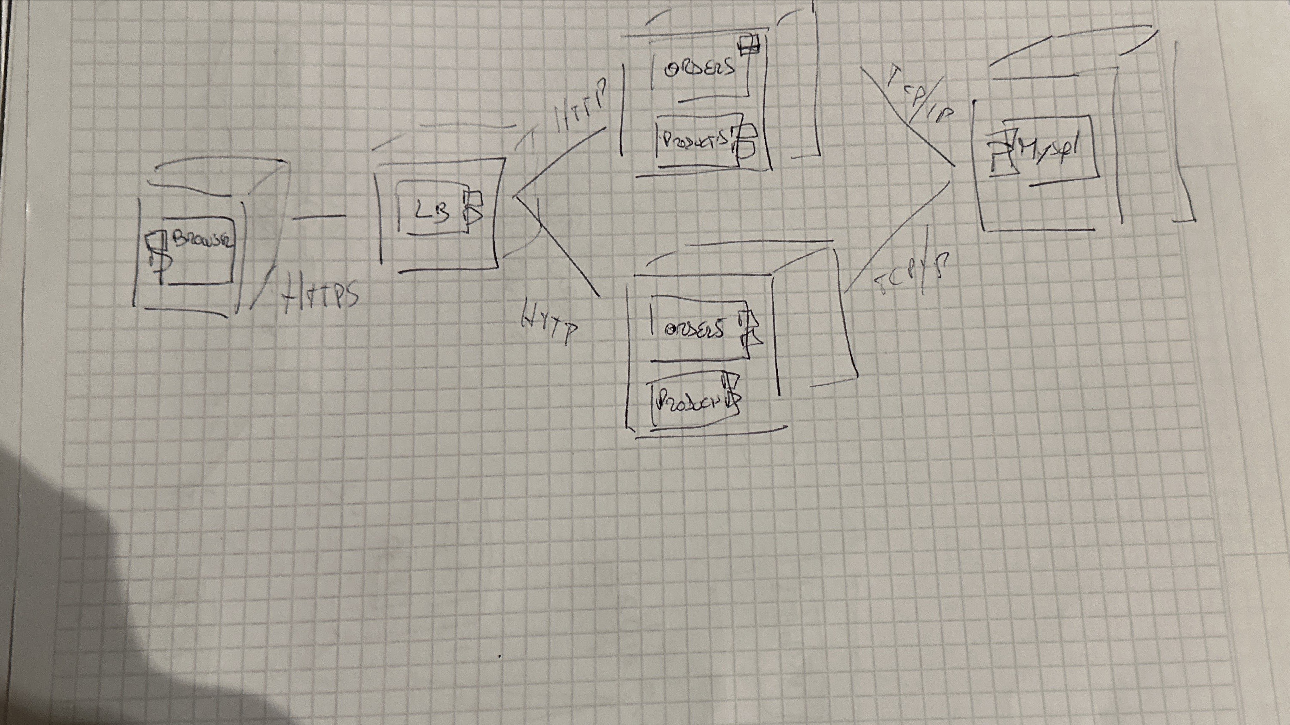 Browser
HTTPS
LB
HTTP
HTTP
ORDERS
PRODUCTS
ORDERS
PRODUCT
TCP/IP
TCP/IP
MySql